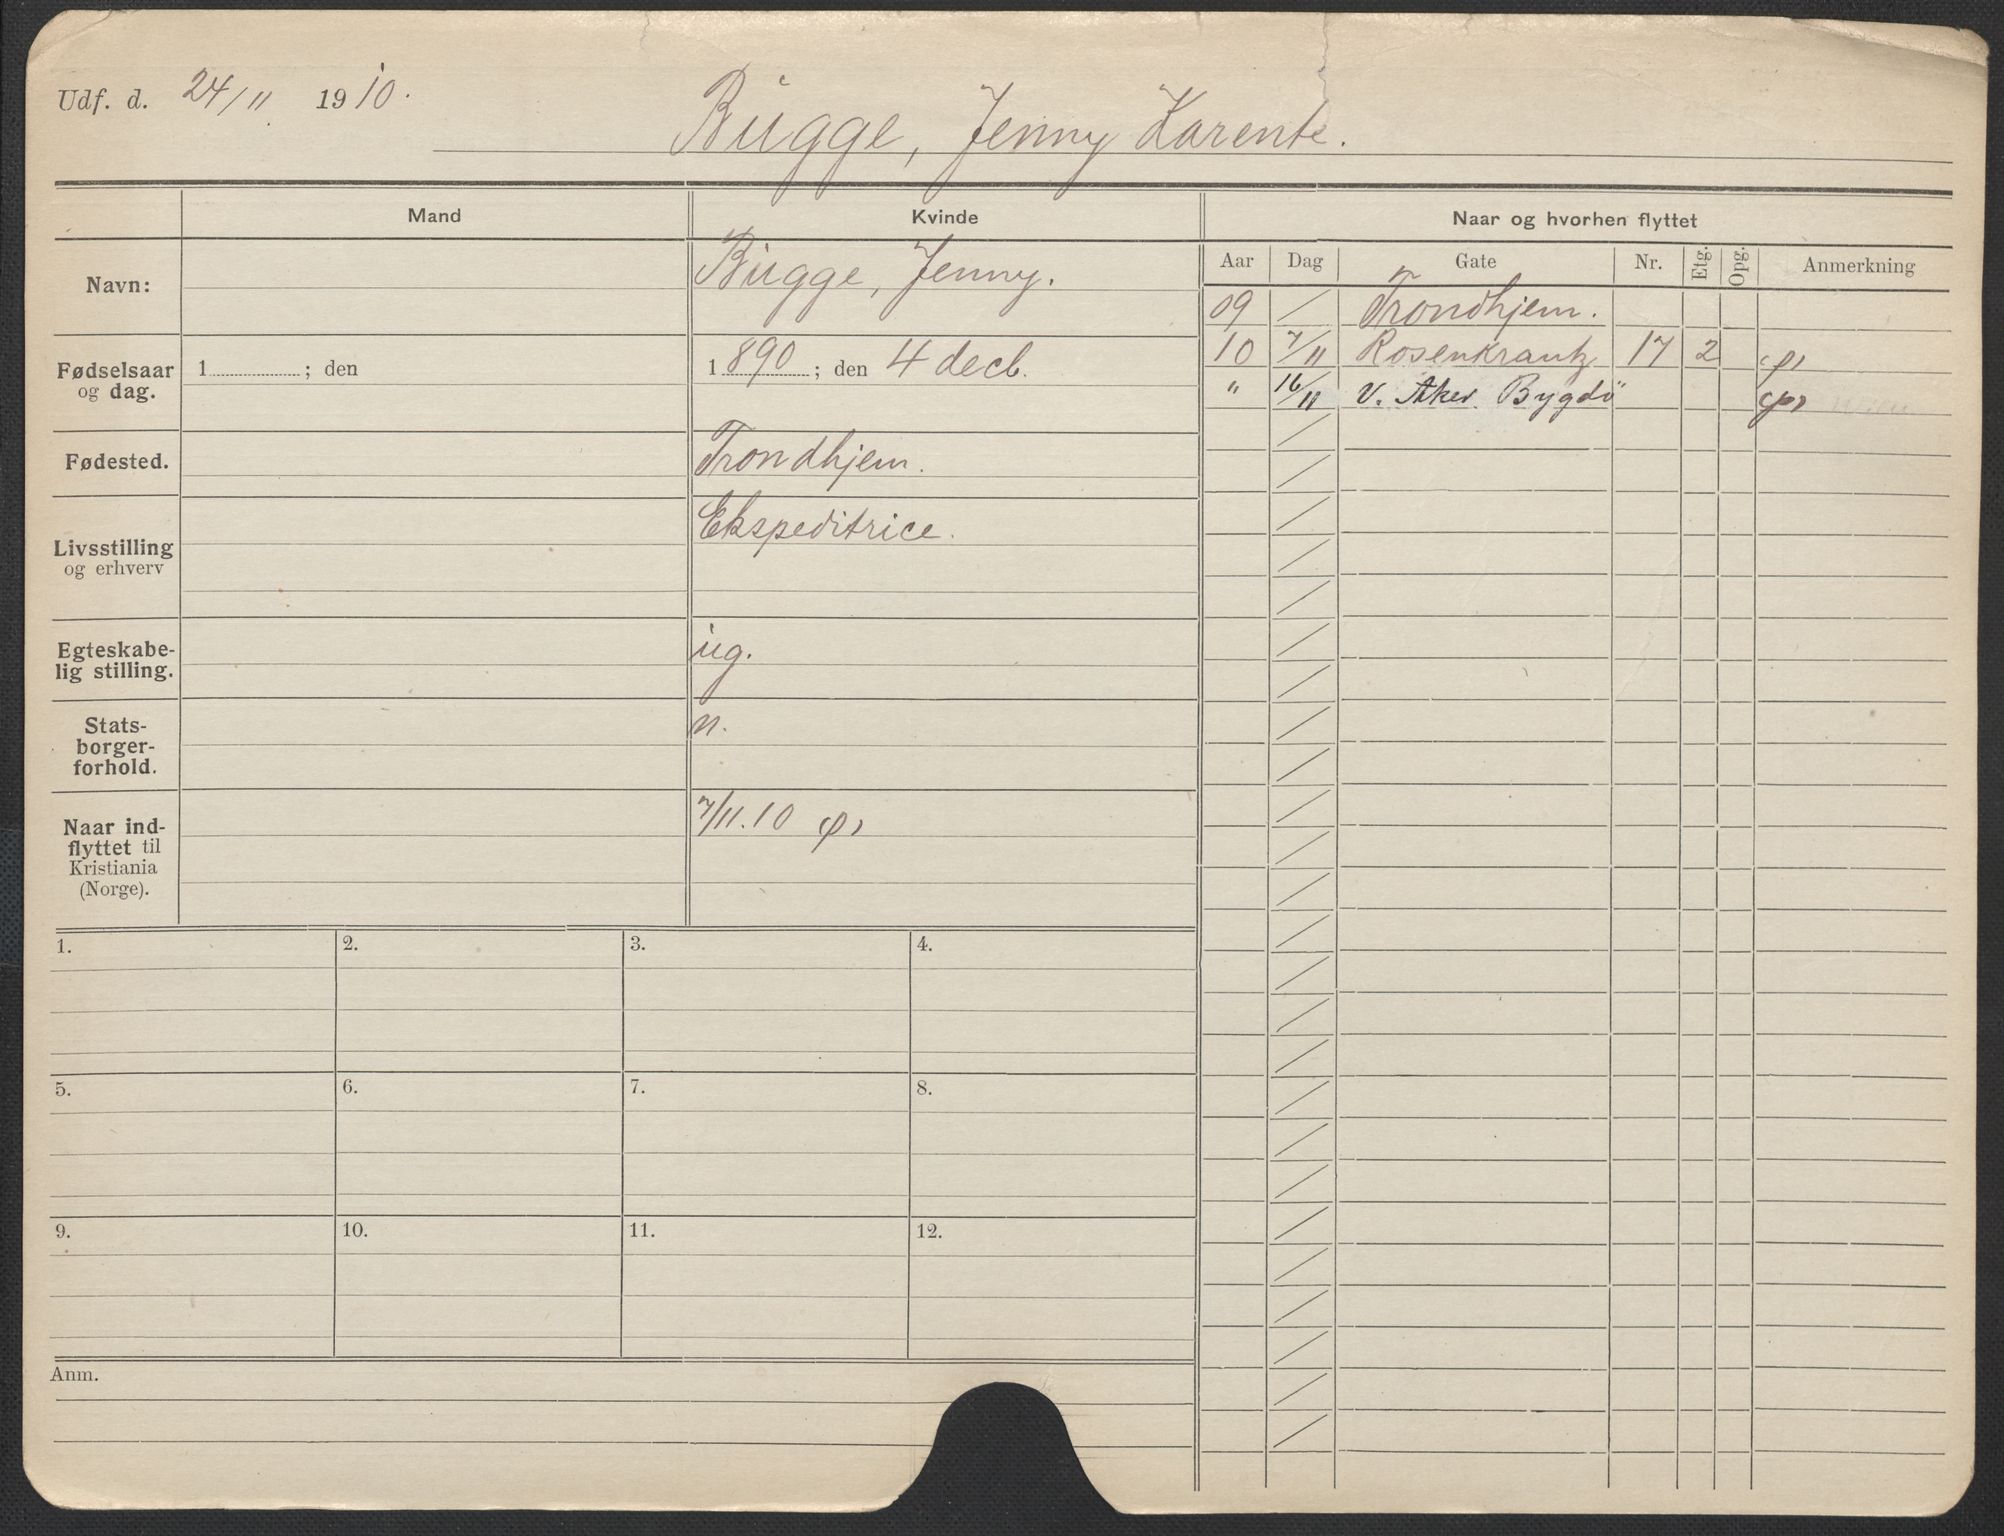 Udf. d. 24/11 1910.
Bugge, Jenny Karente.
Mand
Kvinde
Naar og hvorhen flyttet
Aar
Dag
Gate
Nr.
Etg.
Opg.
Anmerkning
Navn:
Bugge, Jenny.
09 / Trondhjem.
10 7/11 Rosenkrantz 17 2
" 16/11 V. Aker. Bygdö
Fødselsaar
og dag.
1 ; den
1890 ; den 4 decb.
Fødested.
Trondhjem.
Livsstilling
og erhverv
Ekspeditrice.
Egteskabe-
lig stilling.
ug.
Stats-
borger-
forhold.
n.
Naar ind-
flyttet til
Kristiania
(Norge).
7/11.10
1.
2.
3.
4.
5.
6.
7.
8.
9.
10.
11.
12.
Anm.